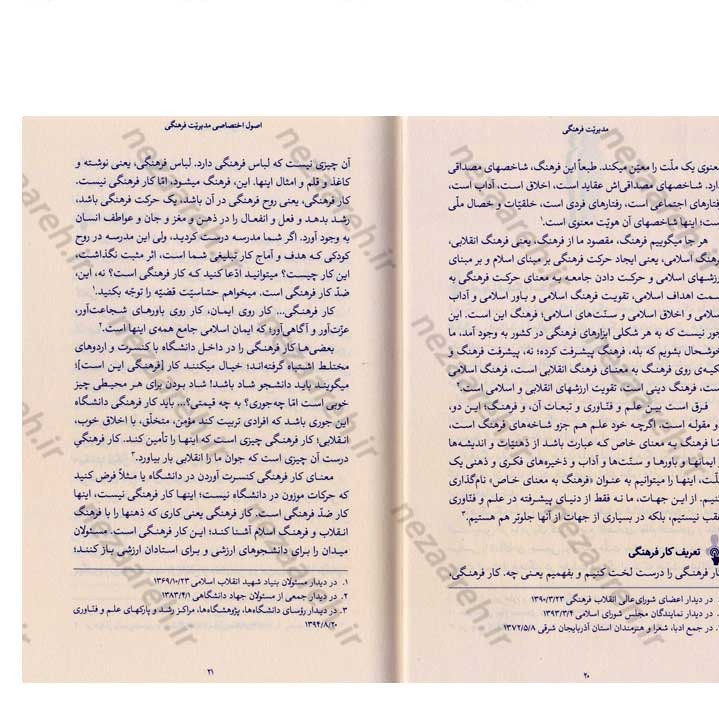 مدیریّت فرهنگی
معنوی یک ملّت را معیّن میکند. طبعاً این فرهنگ، شاخصهای مصداقی
دارد. شاخصهای مصداقی‌اش عقاید است، اخلاق است، آداب است،
رفتارهای اجتماعی است، رفتارهای فردی است، خلقیّات و خصال ملّی
است؛ اینها شاخصهای آن هویّت معنوی است.۱
هر جا میگوییم فرهنگ، مقصود ما از فرهنگ، یعنی فرهنگ انقلابی،
فرهنگ اسلامی، یعنی ایجاد حرکت فرهنگی بر مبنای اسلام و بر مبنای
ارزشهای اسلامی و حرکت دادن جامعه به معنای حرکت فرهنگی به
سمت اهداف اسلامی، تقویت فرهنگ اسلامی و باور اسلامی و آداب
اسلامی و اخلاق اسلامی و سنّت‌های اسلامی؛ فرهنگ این است. این
جور نیست که به هر شکلی ابزارهای فرهنگی در کشور به وجود آمد، ما
خوشحال بشویم که بله، فرهنگ پیشرفت کرده؛ نه، پیشرفت فرهنگ و
تکیه‌ی روی فرهنگ به معنای فرهنگ انقلابی است، فرهنگ اسلامی
است، فرهنگ دینی است، تقویت ارزشهای انقلابی و اسلامی است.۲
فرق است بین علم و فنّاوری و تبعات آن، و فرهنگ؛ این دو،
دو مقوله است. اگرچه خود علم هم جزو شاخه‌های فرهنگ است،
امّا فرهنگ به معنای خاص که عبارت باشد از ذهنیّات و اندیشه‌ها
و ایمانها و باورها و سنّت‌ها و آداب و ذخیره‌های فکری و ذهنی یک
ملّت، اینها را میتوانیم به عنوان «فرهنگ به معنای خاص» نام‌گذاری
کنیم. از این جهات، ما نه فقط از دنیای پیشرفته در علم و فنّاوری
عقب نیستیم، بلکه در بسیاری از جهات از آنها جلوتر هم هستیم.۳
تعریف کار فرهنگی
کار فرهنگی را درست لخت کنیم و بفهمیم یعنی چه. کار فرهنگی،
۱. در دیدار اعضای شورای‌عالی انقلاب فرهنگی ۱۳۹۰/۳/۲۳
۲. در دیدار نمایندگان مجلس شورای اسلامی ۱۳۹۳/۳/۴
۳. در جمع ادبا، شعرا و هنرمندان استان آذربایجان شرقی ۱۳۷۲/۵/۸
۲۰
اصول اختصاصی مدیریّت فرهنگی
آن چیزی نیست که لباس فرهنگی دارد. لباس فرهنگی، یعنی نوشته و
کاغذ و قلم و امثال اینها. این، فرهنگ میشود، امّا کار فرهنگی نیست.
کار فرهنگی، یعنی روح فرهنگی در آن باشد، یک حرکت فرهنگی باشد،
رشد بدهد و فعل و انفعال را در ذهن و مغز و جان و عواطف انسان
به وجود آورد. اگر شما مدرسه درست کردید، ولی این مدرسه در روح
کودکی که هدف و آماج کار تبلیغی شما است، اثر مثبت نگذاشت،
این کار چیست؟ میتوانید ادّعا کنید که کار فرهنگی است؟ نه، این،
ضدّ کار فرهنگی است. میخواهم حسّاسیّت قضیّه را توجّه بکنید.۱
کار فرهنگی... کار روی ایمان، کار روی باورهای شجاعت‌آور،
عزّت‌آور و آگاهی‌آور؛ که ایمان اسلامی جامع همه‌ی اینها است.۲
بعضی‌ها کار فرهنگی را در داخل دانشگاه با کنسرت و اردوهای
مختلط اشتباه گرفته‌اند؛ خیال میکنند کار [فرهنگی این است]؛
میگویند باید دانشجو شاد باشد! شاد بودن برای هر محیطی چیز
خوبی است امّا چه‌جوری؟ به چه قیمتی؟... باید کار فرهنگی دانشگاه
این جوری باشد که افرادی تربیت کند مؤمن، متخلّق، با اخلاق خوب،
انقلابی؛ کار فرهنگی چیزی است که اینها را تأمین کند. کار فرهنگی
درست آن چیزی است که جوان ما را انقلابی بار بیاورد.۳
معنای کار فرهنگی کنسرت آوردن در دانشگاه یا مثلاً فرض کنید
که حرکات موزون در دانشگاه نیست؛ اینها کار فرهنگی نیست، اینها
کار ضدّ فرهنگی است. کار فرهنگی یعنی کاری که ذهنها را با فرهنگ
انقلاب و فرهنگ اسلام آشنا کند؛ این کار فرهنگی است. مسئولان
میدان را برای دانشجوهای ارزشی و برای استادان ارزشی باز کنند؛
۱. در دیدار مسئولان بنیاد شهید انقلاب اسلامی ۱۳۶۹/۱۰/۲۳
۲. در دیدار جمعی از مسئولان جهاد دانشگاهی ۱۳۸۳/۴/۱
۳. در دیدار رؤسای دانشگاه‌ها، پژوهشگاه‌ها، مراکز رشد و پارکهای علم و فنّاوری
۱۳۹۴/۸/۲۰
۲۱
nezaareh.ir